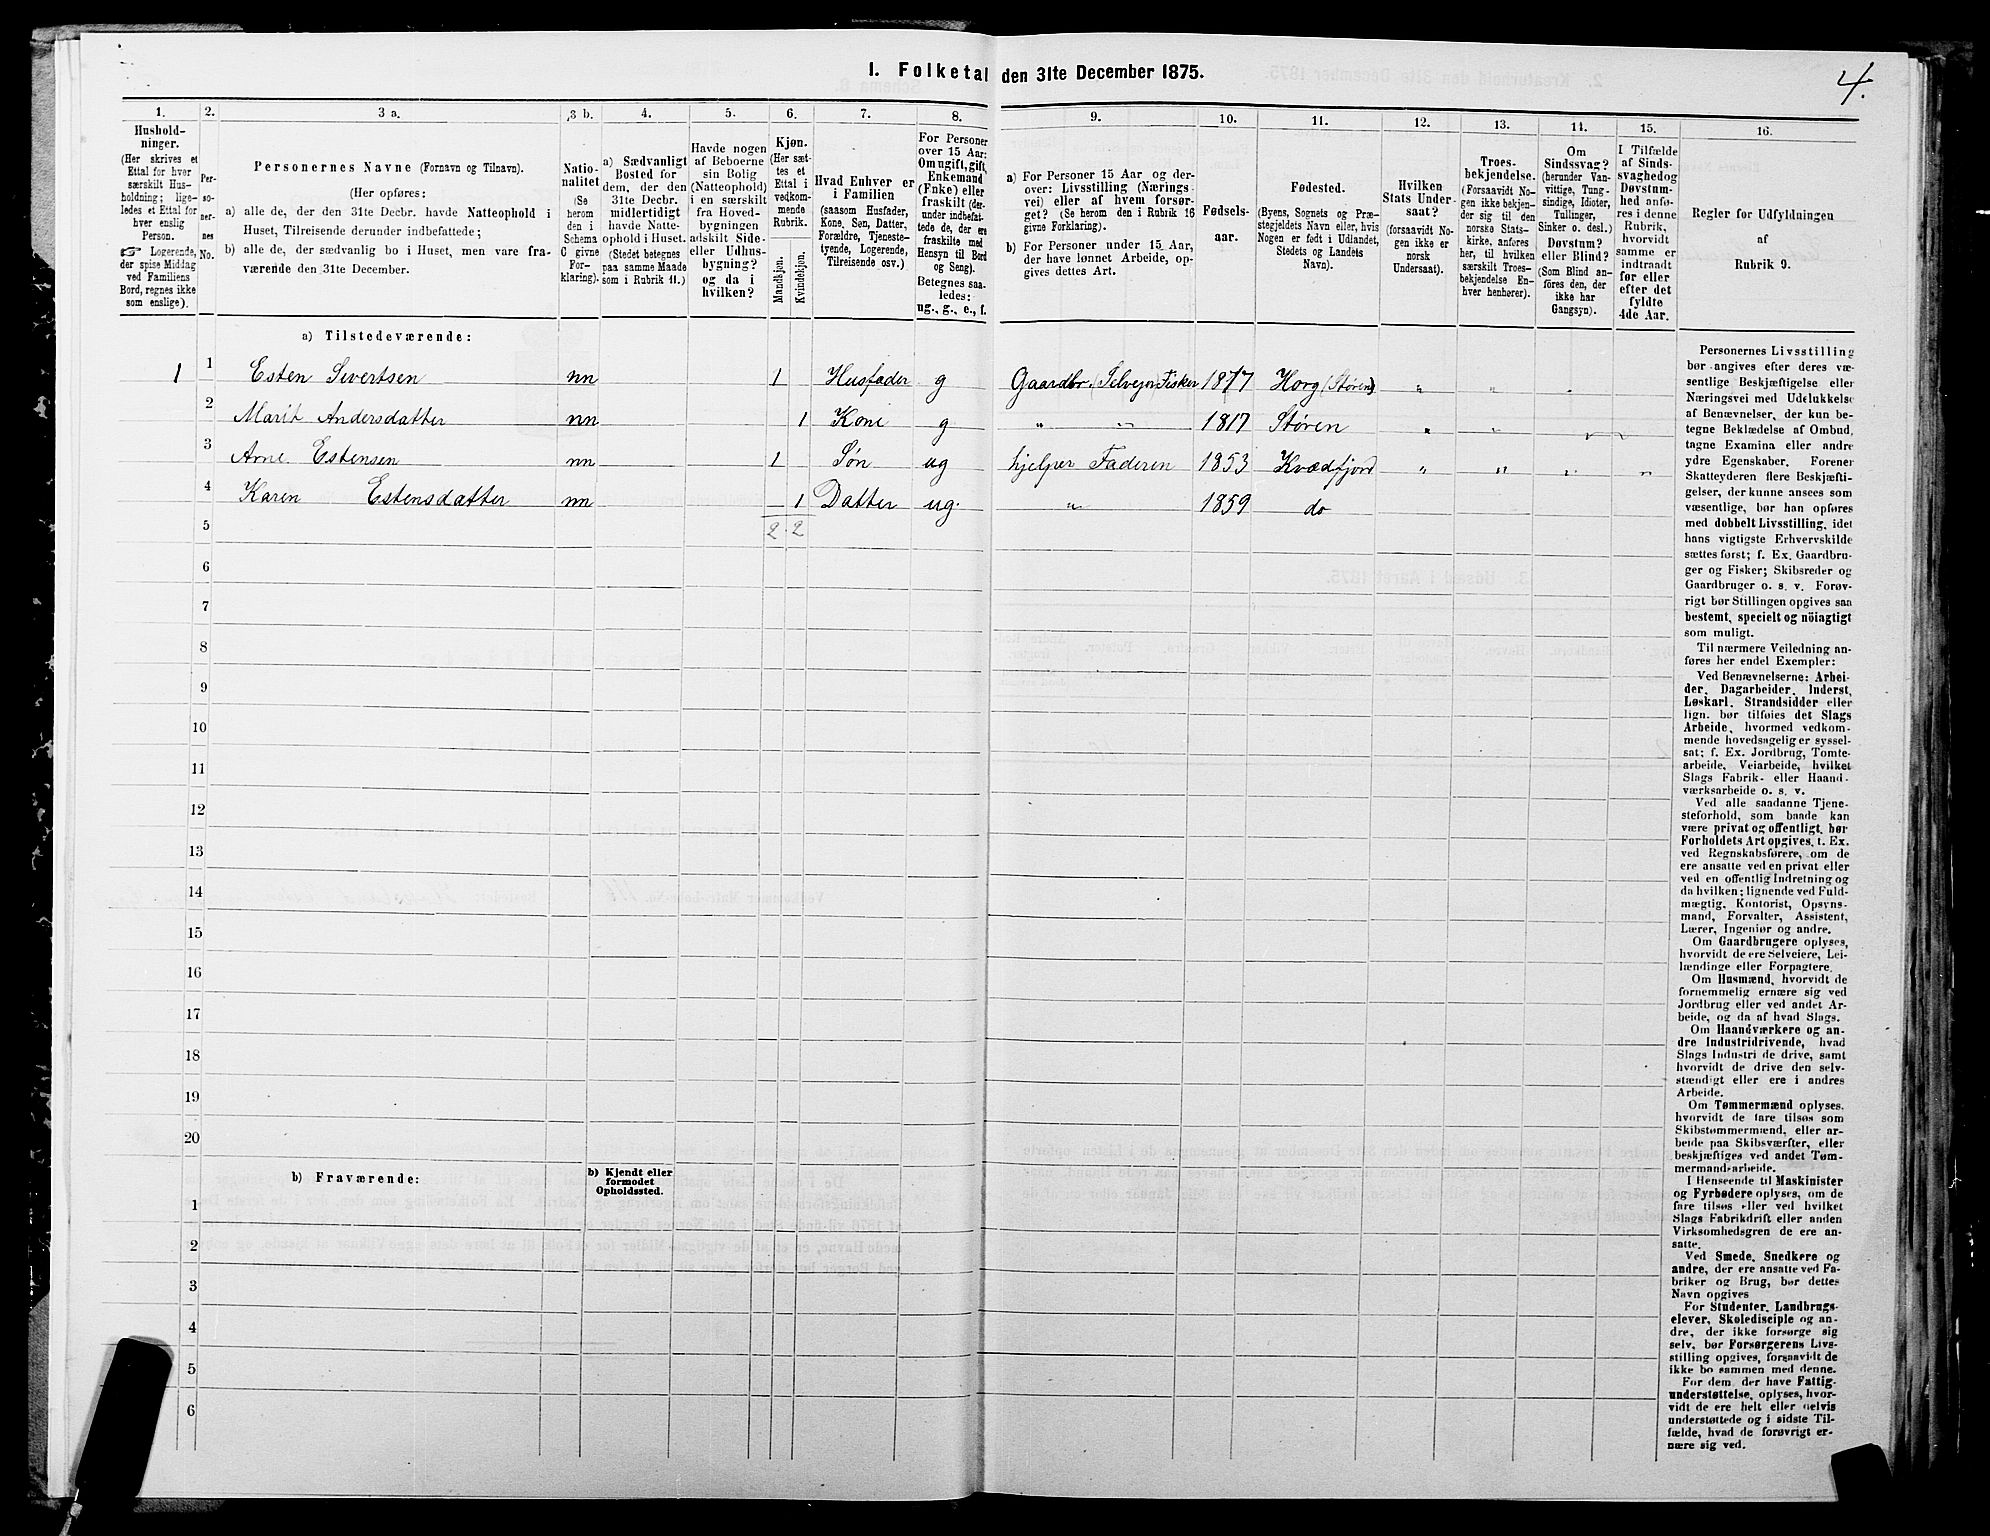 I. Folketal den 31te December 1875.
4.
1.
Hushold-
ninger.
(Her skrives et
Ettal for hver
særskilt Hus-
holdning; lige-
ledes et Ettal for
hver enslig
Person.
☞ Logerende,
der spise Middag
ved Familiens
Bord, regnes ikke
som enslige).
2.
Per-
so-
ner-
nes
No.
3 a.
Personernes Navne (Fornavn og Tilnavn).
(Her opføres:
a) alle de, der den 31te Decbr. havde Natteophold i
Huset, Tilreisende derunder indbefattede;
b) alle de, der sædvanlig bo i Huset, men vare fra-
værende den 31te December.
3 b.
Natio-
nalitet
(Se
herom
den i
Schema
C givne
For-
klaring).
4.
a) Sædvanligt
Bosted for
dem, der den
31te Decbr.
midlertidigt
havde Natte-
ophold i Huset.
(Stedet betegnes
paa samme Maade
som i Rubrik 11.)
5.
Havde nogen
af Beboerne
sin Bolig
(Natteophold)
i en særskilt
fra Hoved-
bygningen
adskilt Side-
eller Udhus-
bygning?
og da i
hvilken?
6.
Kjøn.
(Her sæt-
tes et
Ettal i
vedkom-
mende
Rubrik.
Mandkjøn.
Kvindekjøn.
7.
Hvad Enhver er
i Familien
(saasom Husfader,
Kone, Søn, Datter,
Forældre, Tjeneste-
tyende, Logerende,
Tilreisende osv.)
8.
For Personer
over 15 Aar:
Om ugift, gift,
Enkemand
(Enke) eller
fraskilt (der-
under indbefat-
tede de, der ere
fraskilte med
Hensyn til Bord
og Seng).
Betegnes saa-
ledes:
ug., g., e., f.
9.
a) For Personer 15 Aar og der-
over: Livsstilling (Nærings-
vei) eller af hvem forsør-
get? (Se herom den i Rubrik 16
givne Forklaring).
b) For Personer under 15 Aar,
der have lønnet Arbeide, op-
gives dettes Art.
10.
Fødsels-
aar.
11.
Fødested.
(Byens, Sognets og Præ-
stegjeldets Navn eller, hvis
Nogen er født i Udlandet,
Stedets og Landets
Navn).
12.
Hvilken
Stats Under-
saat?
(forsaavidt No-
gen ikke er
norsk
Undersaat).
13.
Troes-
bekjendelse.
(Forsaavidt No-
gen ikke bekjen-
der sig til den
norske Stats-
kirke, anføres
her, til hvilken
særskilt Troes-
bekjendelse En-
hver henhører).
14.
Om
Sindssvag?
(herunder Van-
vittige, Tung-
sindige, Idioter,
Tullinger,
Sinker o. desl.)
Døvstum?
eller Blind?
(Som Blind an-
føres den, der
ikke har
Gangsyn).
15.
I Tilfælde
af Sinds-
svaghed og
Døvstum-
hed anfø-
res i denne
Rubrik,
hvorvidt
samme er
indtraadt
før eller
efter det
fyldte
4de Aar.
16.
Regler for Udfyldningen
af
Rubrik 9.
a) Tilstedeværende:
1 1 Esten Sivertsen nn 1 Husfader g Gaardbr. (Selvejer) Fisker 1817 Horg (Støren) " " "
2 Marit Andersdatter nn 1 Kone g " " 1817 Støren " " " "
3 Arne Estensen nn 1 Søn ug hjelper Faderen 1853 Kvædfjord " " " "
4 Karen Estensdatter nn 1 Datter ug. " 1859 do
5 2. 2
6
7
8
9
10
11
12
13
14
15
16
17
18
19
20
b) Fraværende:
b) Kjendt eller
formodet
Opholdssted.
1
2
3
4
5
6
Personernes Livsstilling
bør angives efter deres væ-
sentlige Beskjæftigelse eller
Næringsvei med Udelukkelse
af Benævnelser, der kun be-
tegne Beklædelse af Ombud,
tagne Examina eller andre
ydre Egenskaber. Forener
Skatteyderen flere Beskjæfti-
gelser, der kunne ansees som
væsentlige, bør han opføres
med dobbelt Livsstilling, idet
hans vigtigste Erhvervskilde
sættes først; f. Ex. Gaardbru-
ger og Fisker; Skibsreder og
Gaardbruger o. s. v. Forøv-
rigt bør Stillingen opgives saa
bestemt, specielt og nöiagtigt
som muligt.
Til nærmere Veiledning an-
føres her endel Exempler:
Ved Benævnelserne: Arbei-
der, Dagarbeider, Inderst,
Løskarl, Strandsidder eller
lign. bør tilføies det Slags
Arbeide, hvormed vedkom-
mende hovedsagelig er syssel-
sat; f. Ex. Jordbrug, Tomte-
arbeide, Veiarbeide, hvilket
Slags Fabrik- eller Haand-
værksarbeide o. s. v.
Ved alle saadanne Tjene-
steforhold, som baade kan
være privat og offentligt, bør
Forholdets Art opgives, f. Ex.
ved Regnskabsførere, om de
ere ansatte ved en privat eller
ved en offentlig Indretning og
da hvilken; lignende ved Fuld-
mægtig, Kontorist, Opsyns-
mand, Forvalter, Assistent,
Lærer, Ingeniør og andre.
Om Gaardbrugere oplyses,
hvorvidt de ere Selveiere, Lei-
lændinge eller Forpagtere.
Om Husmænd, hvorvidt de
fornemmelig ernære sig ved
Jordbrug eller ved andet Ar-
beide, og da af hvad Slags.
Om Haandværkere og an-
dre Industridrivende, hvad
Slags Industri de drive, samt
hvorvidt de drive den selv-
stændigt eller ere i andres
Arbeide.
Om Tømmermænd oplyses,
hvorvidt de fare tilsøs som
Skibstømmermænd, eller ar-
beide paa Skibsværfter, eller
beskjæftiges ved andet Tøm-
mermandsarbeide.
I Henseende til Maskinister
og Fyrbødere oplyses, om de
fare tilsøs eller ved hvilket
Slags Fabrikdrift eller anden
Virksomhedsgren de ere an-
satte.
Ved Smede, Snedkere og
andre, der ere ansatte ved Fa-
briker og Brug, bør dettes
Navn opgives
For Studenter, Landbrugs-
elever, Skoledisciple og an-
dre, der ikke forsørge sig
selv, bør Forsørgerens Livs-
stilling opgives, forsaavidt de
ikke bo sammen med denne.
For dem, der have Fattig-
understøttelse, oplyses, hvor-
vidt de ere helt eller delvis
understøttede og i sidste Til-
fælde, hvad de forøvrigt er-
nære sig ved.